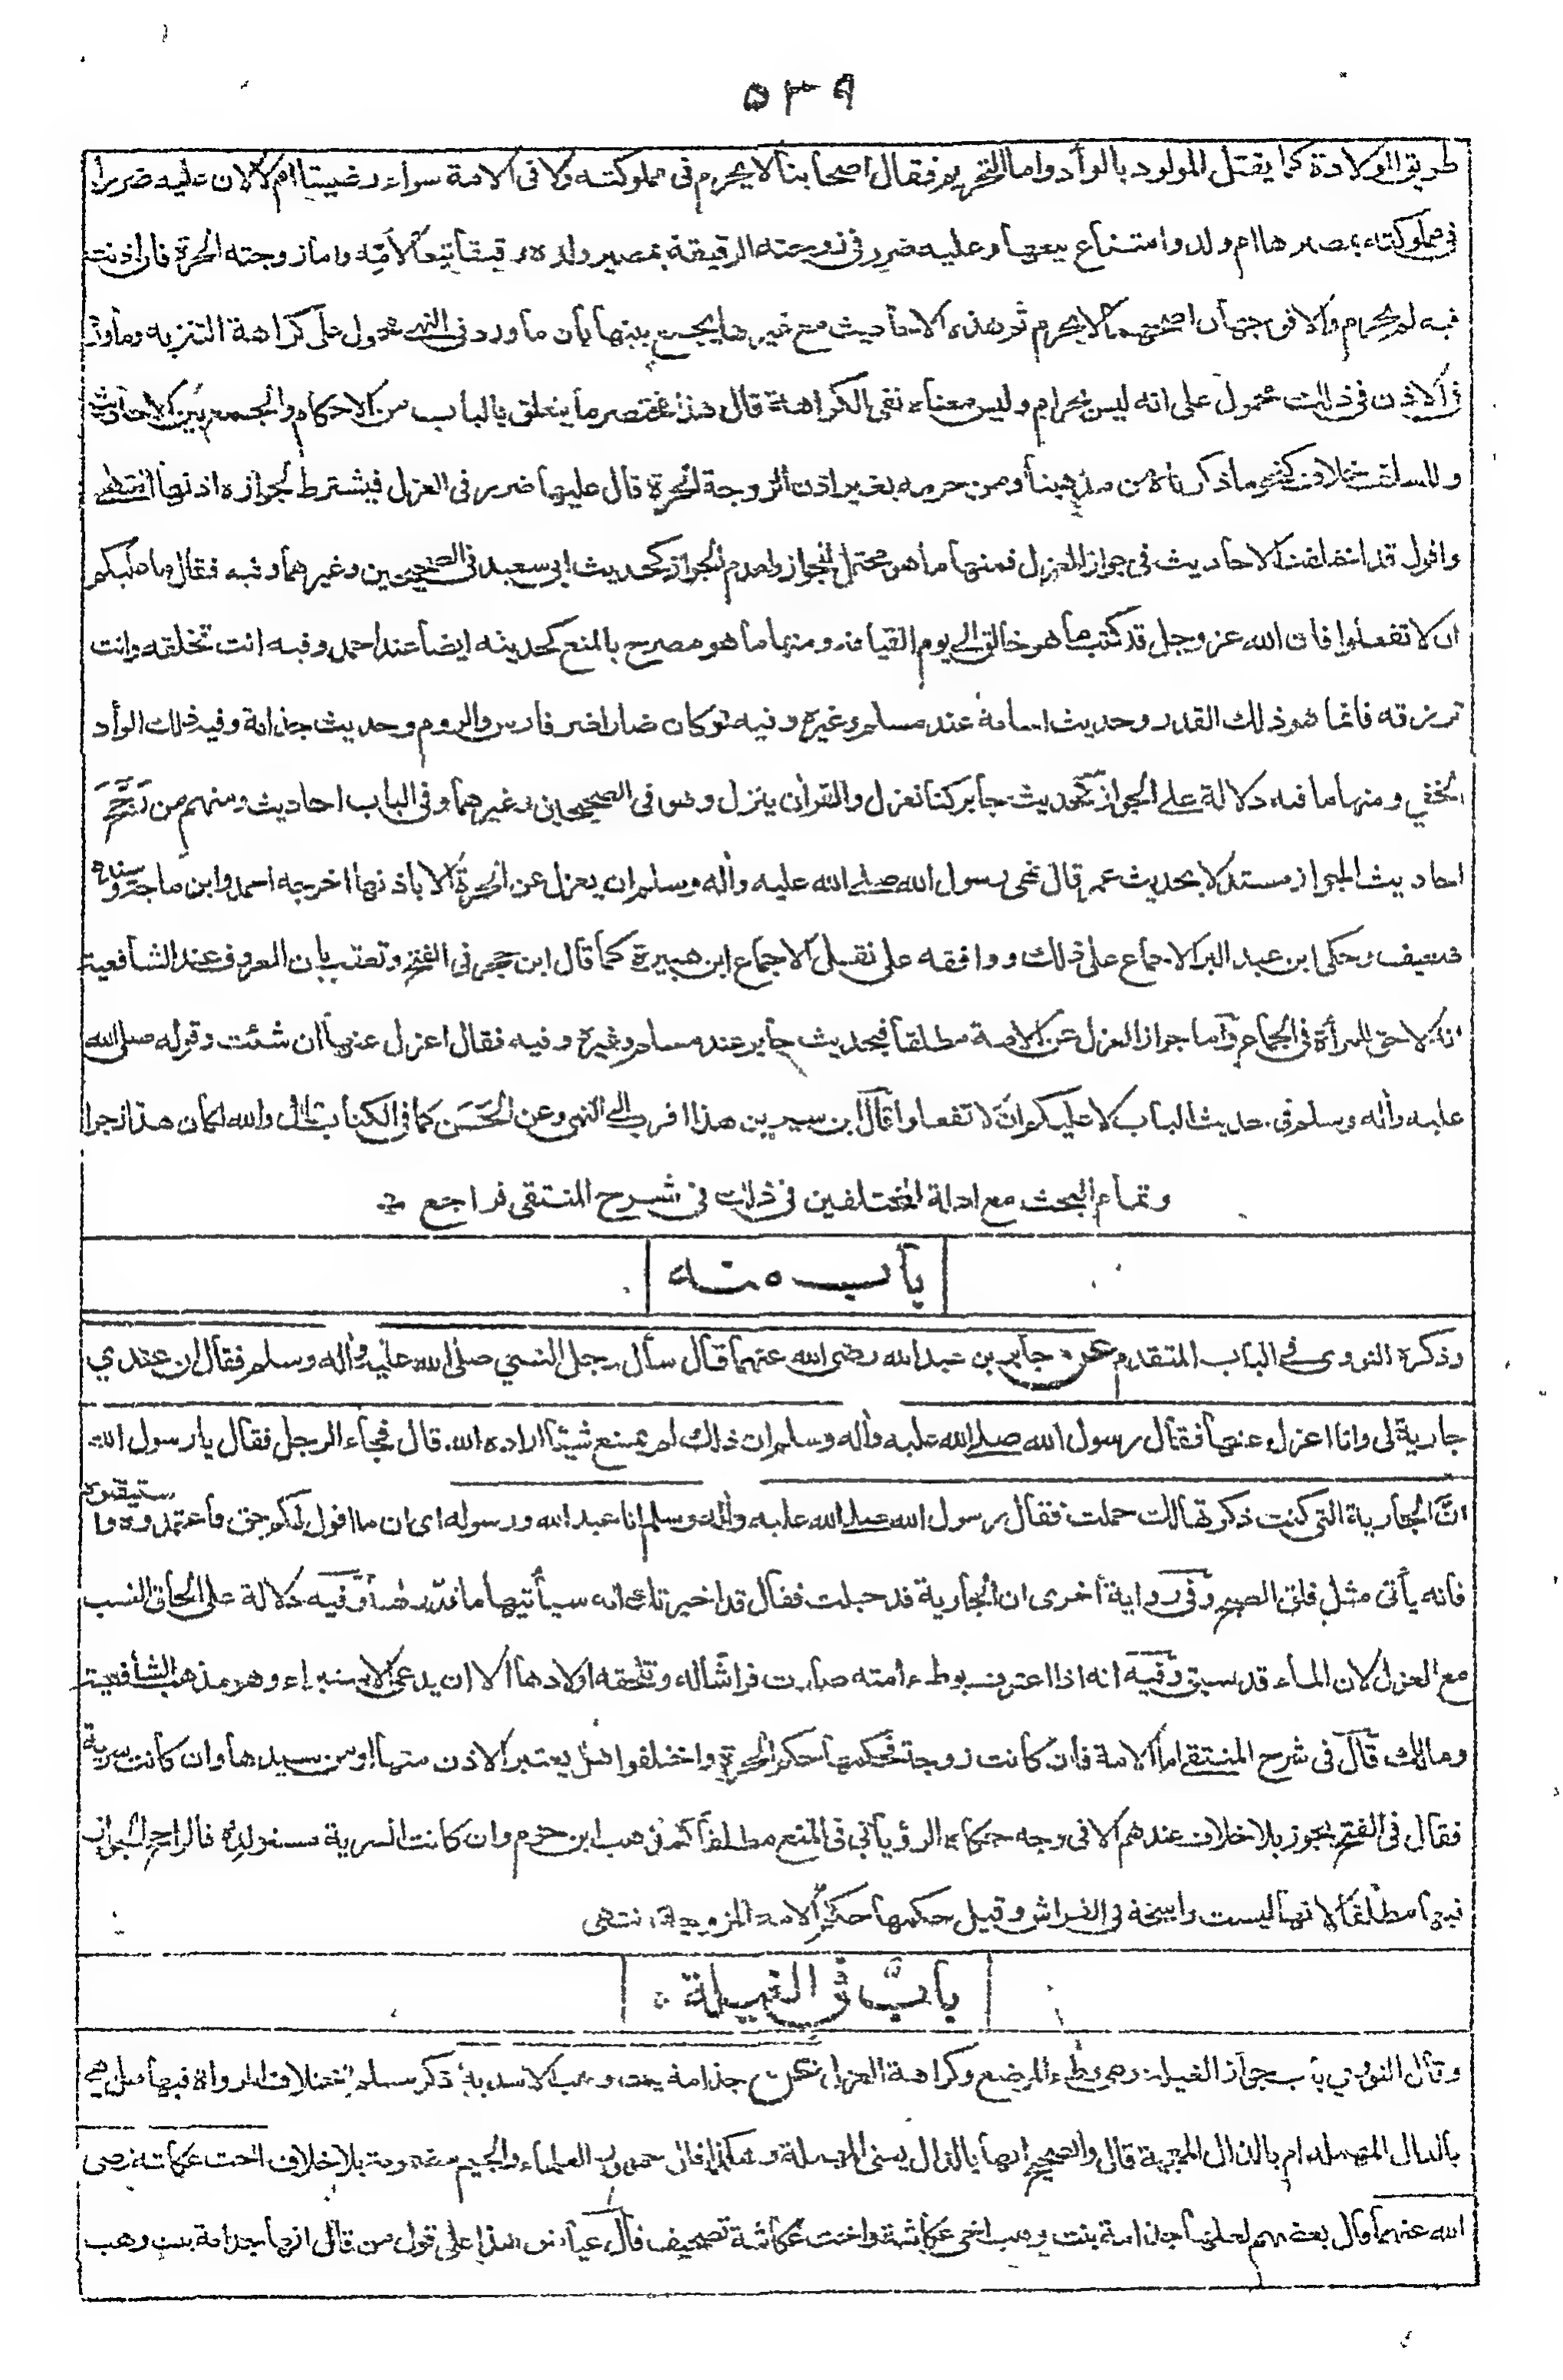 ٥٣٩
طريق الولادة كما يقتل المولود بالوأد واما التحريم فقال اصحابنا لا يحرم فى مملوكته ولا فى الامة سواء رضيتا ام لا لان عليه ضررا
فى مملوكته بمصيرها ام ولد وامتناع بيعها وعليه ضرر فى زوجته الرقيقة بمصير ولده رقيقا تبعا لامه واما زوجته الحرة فان اذنت
فيه لم يحرم والا فوجهان اصحهما لا يحرم ثم هذه الاحاديث مع غيرها يجمع بينها بان ما ورد فى النهى محمول على كراهة التنزيه وما ورد
فى الاذن فى ذلك محمول على انه ليس بحرام وليس معناه نفى الكراهة قال هذا مختصر ما يتعلق بالباب من الاحكام والجمع بين الاحاديث
وللسلف خلاف كنحو ما ذكرناه من مذهبنا ومن حرمه بغير اذن الزوجة الحرة قال عليها ضرر فى العزل فيشترط لجوازه اذنها انتهى
واقول قد اختلفت الاحاديث فى جواز العزل فمنها ما هو محتمل للجواز ولعدم الجواز كحديث ابى سعيد فى الصحيحين وغيرهما وفيه فقال ما عليكم
ان لا تفعلوا فان الله عز وجل قد كتب ما هو خالق الى يوم القيامة ومنها ما هو مصرح بالمنع كحديثه ايضا عند احمد وفيه انت تخلقه وانت
ترزقه فانما هو ذلك القدر وحديث اسامة عند مسلم وغيره وفيه لو كان ضارا ضر فارس والروم وحديث جذامة وفيه ذلك الوأد
الخفي ومنها ما فيه دلالة على الجواز كحديث جابر كنا نعزل والقرآن ينزل وهو فى الصحيحين وغيرهما وفى الباب احاديث ومنهم من رَجَّحَ
احاديث الجواز مستدلا بحديث عمر قال نهى رسول الله صلى الله عليه وآله وسلم ان يعزل عن الحرة الا باذنها اخرجه احمد وابن ماجة وسنده
ضعيف وحكى ابن عبد البر الاجماع على ذلك ووافقه على نقل الاجماع ابن هبيرة كما قال ابن حجر فى الفتح وتعقب بان المعروف عند الشافعية
انه لا حق للمرأة فى الجماع واما جواز العزل عن الامة مطلقا فبحديث جابر عند مسلم وغيره وفيه فقال اعزل عنها ان شئت وقوله صلى الله
عليه وآله وسلم فى حديث الباب لا عليكم ان لا تفعلوا قال ابن سيرين هذا اقرب الى النهى وعن الحَسَن كما فى الكتاب قال والله لكان هذا زجرا
وتمام البحث مع ادلة المختلفين فى ذلك فى شرح المنتقى فراجع
باب منه
وذكره النووى فى الباب المتقدم عن جابر بن عبد الله رضى الله عنهما قال سأل رجل النبي صلى الله عليه وآله وسلم فقال ان عندي
جارية لى وانا اعزل عنها فقال رسول الله صلى الله عليه وآله وسلم ان ذلك لم يمنع شيئا اراده الله قال فجاء الرجل فقال يا رسول الله
انَّ الجارية التى كنت ذكرتها لك حملت فقال رسول الله صلى الله عليه وآله وسلم انا عبد الله ورسوله اى ان ما اقول لكم حق فاعتمدوه واستيقنوه
فانه يأتى مثل فلق الصبح وفى رواية أخرى ان الجارية قد حبلت فقال قد اخبرتك انه سيأتيها ما قدّر لها وفيه دلالة على الحاق النسب
مع العزل لان الماء قد سبق وفيه انه اذا اعترف بوطء امته صارت فراشا له وتلحقه اولادها الا ان يدعى الاستبراء وهو مذهب الشافعية
ومالك قال فى شرح المنتقى اما الامة فان كانت زوجة فحكمها حكم الحرة واختلفوا هل يعتبر الاذن منها او من سيدها وان كانت سرية
فقال فى الفتح يجوز بلا خلاف عندهم الا فى وجه حكاه الرؤيانى فى المنع مطلقا كمذهب ابن حزم وان كانت السرية مستولدة فالراجح الجواز
فيها مطلقا لانها ليست راسخة فى الفراش وقيل حكمها حكم الامة المزوجة انتهى
باب فى الغيلة
وقال النووي باب جواز الغيلة وهى وطء المرضع وكراهة العزل عن جذامة بنت وهب الاسدية ذكر مسلم اختلاف الرواة فيها هل هى
بالدال المهملة ام بالذال المعجمة قال والصحيح انها بالدال يعنى المهملة وهكذا قال جمهور العلماء والجيم مضمومة بلا خلاف اخت عكاشة رضى
الله عنهما وقال بعضهم لعلها جذامة بنت وهب اخى عكاشة واخت عكاشة تصحيف قال عياض هذا على قول من قال انها جدامة بنت وهب